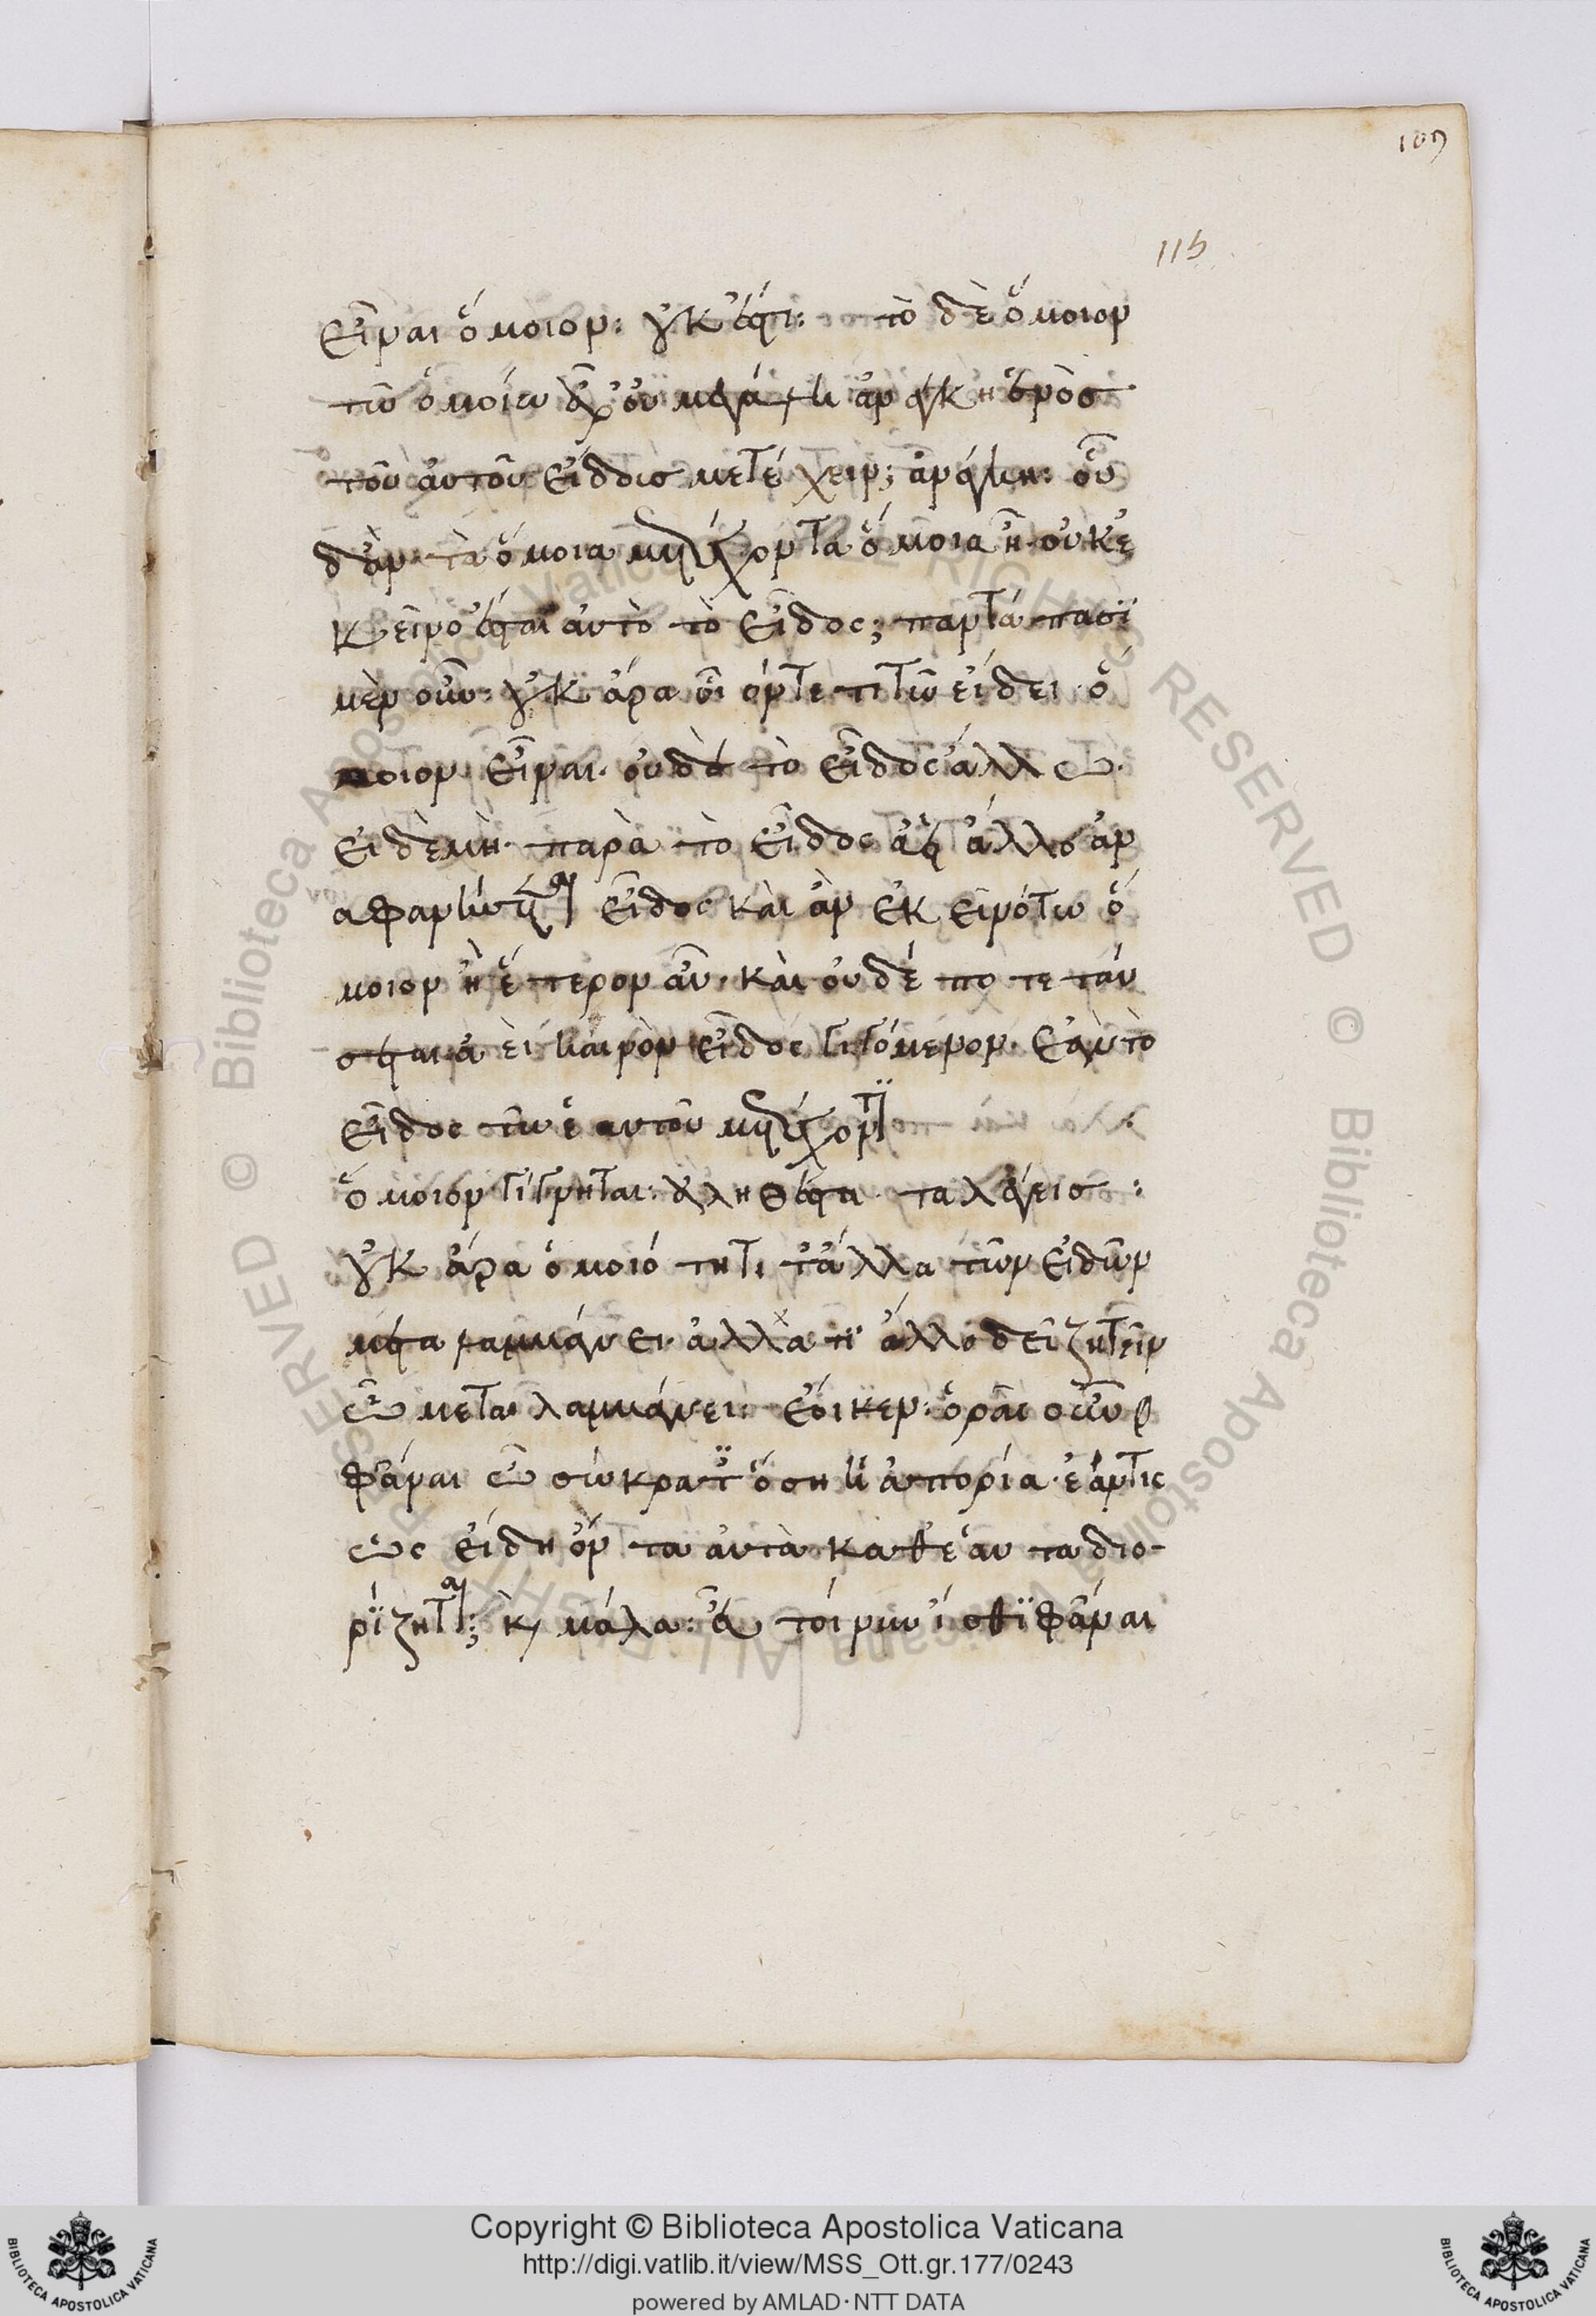 109
115
εἶναι ὅμοιον: οὐκ ἔστι: τὸ δὲ ὅμοιον
τῶ ὁμοίω ἆρ' οὐ μεγάλη ἀνάγκη ἑνὸς
τοῦ αὐτοῦ εἴδους μετέχειν; ἀνάγκη: οὗ
δ' ἂν τὰ ὅμοια μετέχοντα ὅμοια ἦ· οὐκ ἐ
κεῖνο ἔσται αὐτὸ τὸ εἶδος; παντάπασϊ
μὲν οὖν: οὐκ ἄρα οἷόν τέ τι τῶ εἴδει ὅ
μοιον εἶναι· οὐδὲ τὸ εἶδος ἄλλω·
εἰ δὲ μὴ· παρὰ τὸ εἶδος ἀεὶ ἄλλο ἀν
αφανήσεται εἶδος καὶ ἂν ἐκείνό τω ὅ
μοιον ἦ ἕτερον αὖ· καὶ οὐδέποτε παύ
σεται ἀεὶ καινὸν εἶδος γιγόμενον· ἐὰν τὸ
εἶδος τῶ ἑαυτοῦ μετέχοντι
ὅμοιον γίγνηται: ἀληθέστατα λέγεις:
οὐκ ἄρα ὁμοιότητι τἄλλα τῶν εἰδῶν
μεταλαμβάνει· ἀλλά τι ἄλλο δεῖ ζητεῖν
ὧ μεταλαμβάνει: ἔοικεν: ὁρᾶς οὖν
φάναι ὦ σώκρατες ὅση ἡ ἀπορία· ἐάν τις
ὡς εἴδη ὄντα αὐτὰ καθ' ἑαυτὰ διο-
ρίζηται; καὶ μάλα: εὖ τοίνυν ἴσθϊ φάναι
Copyright © Biblioteca Apostolica Vaticana
http://digi.vatlib.it/view/MSS_Ott.gr.177/0243
powered by AMLAD·NTT DATA